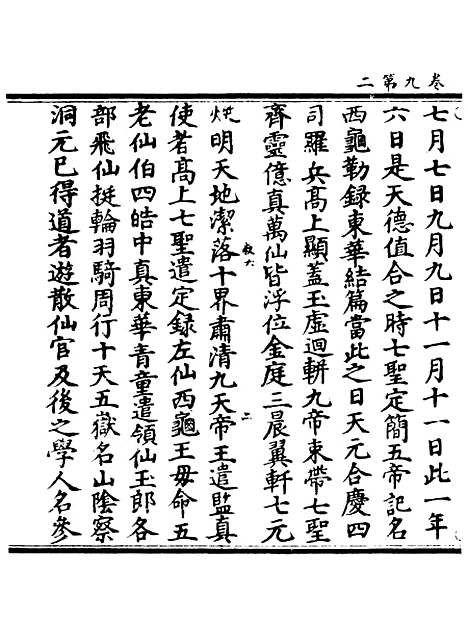 二第九卷
七月七日九月九日十一月十一日此一年
六日是天德值合之時七聖定簡五帝記名
西龜勒録東華結篇當此之日天元合慶四
司羅兵髙上顯蓋玉虛迴軿九帝束帶七聖
齊靈億真萬仙皆浮位金庭三晨翼軒七元
煥明天地潔落十界肅清九天帝王遣監真
使者髙上七聖遣定録左仙西龜王母命五
老仙伯四皓中真東華青童遣領仙玉郎各
部飛仙挺輪羽騎周行十天五嶽名山陰察
洞元已得道者遊散仙官及後之學人名參
二